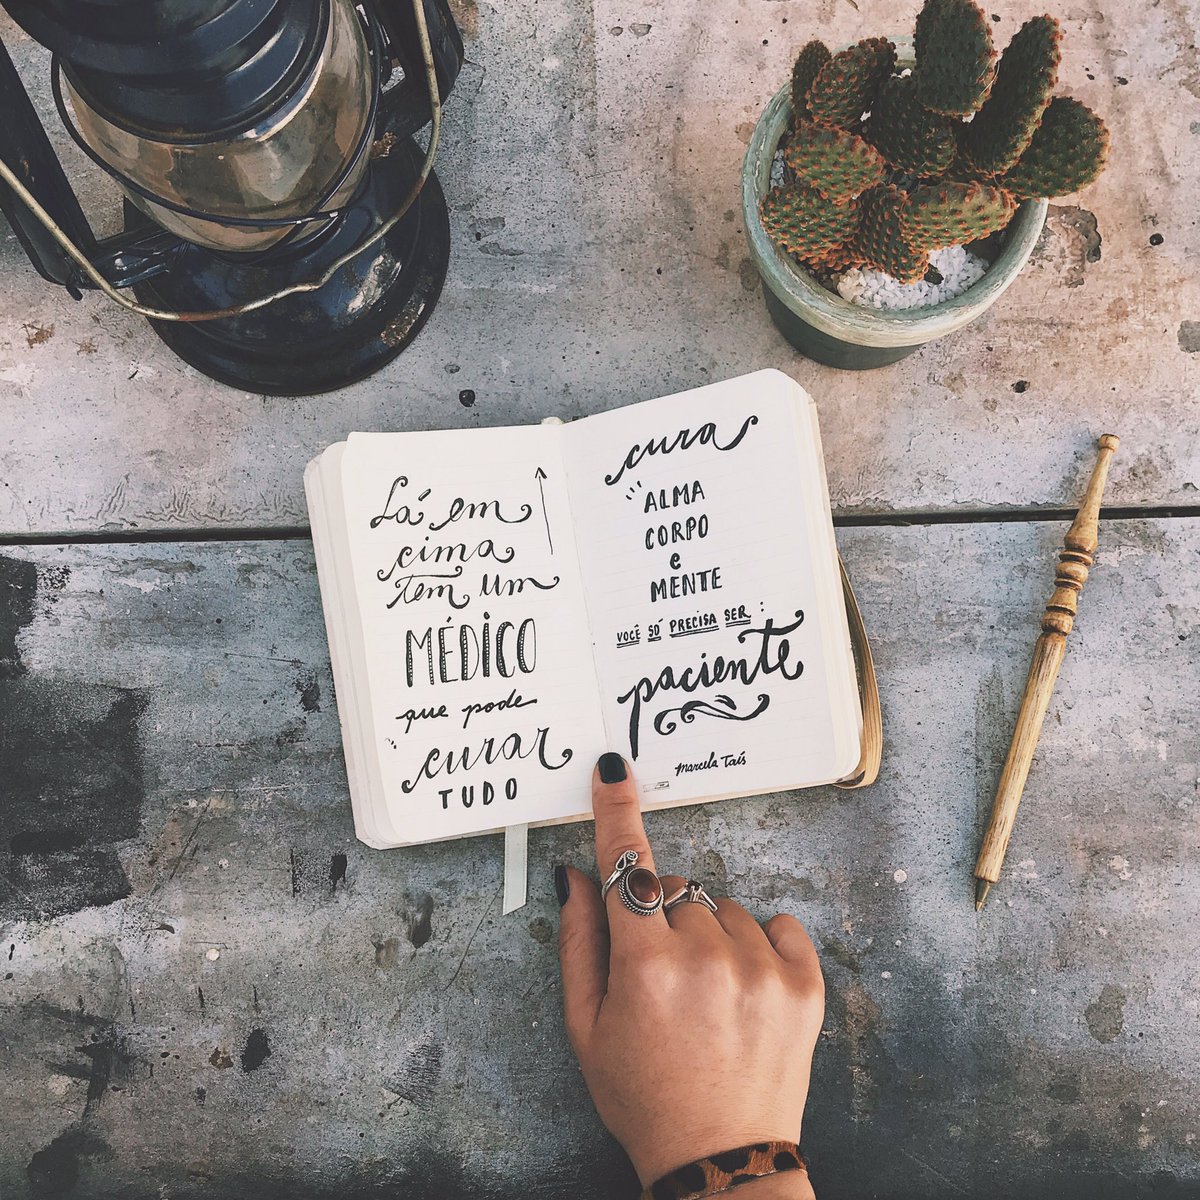 Lá em
cima
tem um
MÉDICO
que pode
curar
TUDO
cura
ALMA
CORPO
e
MENTE
VOCÊ SÓ PRECISA SER:
paciente
Marcela Taís